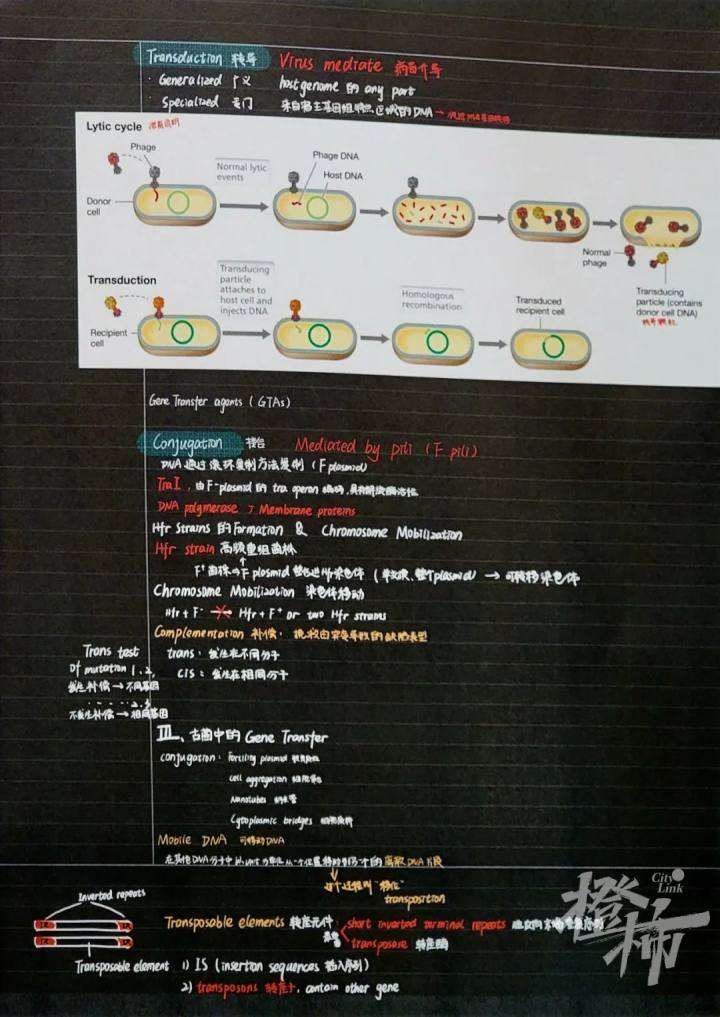 Transduction 转导 Virus mediate 病毒介导
· Generalized 广义 host genome 的 any part
· Specialized 专门 来自宿主基因组特定区域的DNA →
Lytic cycle
Phage
Donor cell
Normal lytic events
Phage DNA
Host DNA
Normal phage
Transducing particle (contains donor cell DNA)
转导颗粒
Transduction
Recipient cell
Transducing particle attaches to host cell and injects DNA
Homologous recombination
Transduced recipient cell
Gene Transfer agents (GTAs)
Conjugation 接合 Mediated by pili (F pili)
DNA 通过滚环复制方法复制 (F plasmid)
TraI, 由F-plasmid 的 tra operon 编码, 具有解旋酶活性
DNA polymerase Membrane proteins
Hfr Strains 的 Formation & Chromosome Mobilization
Hfr strain 高频重组菌株
F⁺菌株 → F plasmid 整合进Hfr染色体 ( 整个plasmid) → 可转移染色体
Chromosome Mobilization 染色体移动
Hfr + F⁻ → Hfr + F⁺ or two Hfr strains
Complementation 补偿: 挽救由突变导致的缺陷表型
trans: 发生在不同分子
cis: 发生在相同分子
Trans test
of mutation 1. 2.
发生补偿 → 不同基因
2.3
不发生补偿 → 相同基因
III、古菌中的 Gene Transfer
conjugation: Fertility plasmid
cell aggregation 细胞聚集
Nanotubes 纳米管
Cytoplasmic bridges
Mobile DNA 可移动DNA
在其他DNA分子中以unit为单位从一个位置移动到另一个的离散DNA片段
这个过程叫“移位”
transposition
Inverted repeats
IR IR
IR IR
Transposable element
Transposable elements 转座元件:
short inverted terminal repeats
transposase 转座酶
1) IS (insertion sequences 插入序列)
2) transposons 转座子, contain other gene
City Link
橙柿